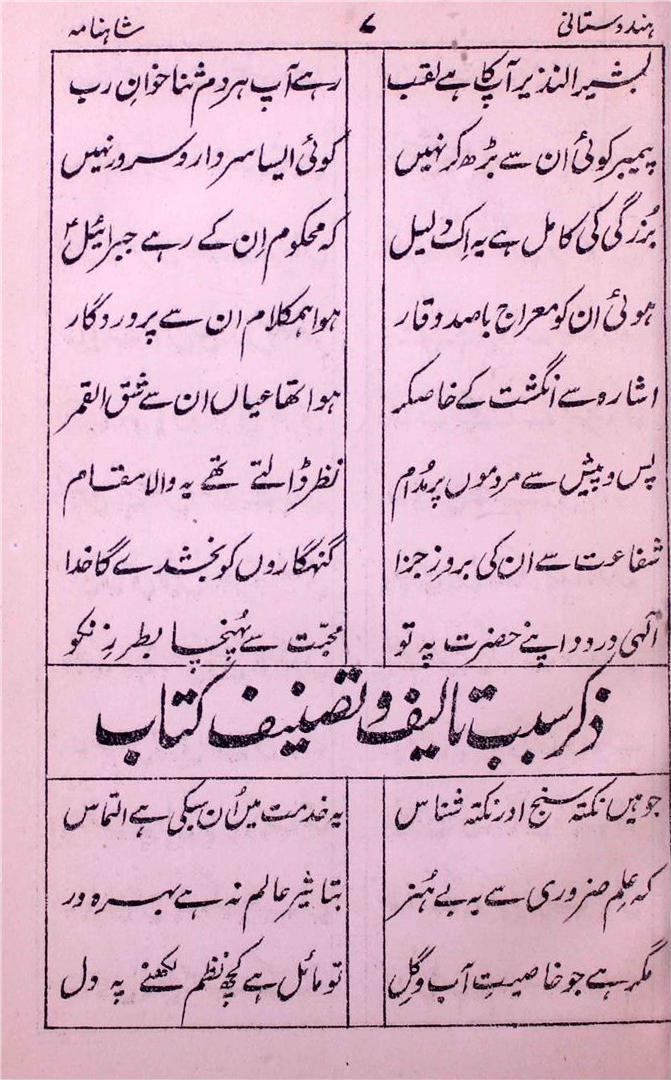 ہندوستانی ۷ شاہنامہ
بشیر النذیر آپ کا ہے لقب رہے آپ ہر دم ثنا خوانِ رب
پیمبر کوئی ان سے بڑھ کر نہیں کوئی ایسا سردار و سرور نہیں
بُزرگی کی کامل ہے یہ اِک دلیل کہ محکوم اِن کے رہے جبرائیلؑ
ہوئی ان کو معراج باصد وقار ہوا ہمکلام ان سے پروردگار
اشارہ سے انگشت کے خاصکر ہوا تھا عیاں ان سے شق القمر
پس و پیش سے مردموں پر مُدام نظر ڈالتے تھے یہ والا مقام
شفاعت سے ان کی بروزِ جزا گنہگاروں کو بخشدے گا خدا
الٰہی درود اپنے حضرت پہ تو محبّت سے پُہنچا بطرزِ نکو
ذکر سبب تالیف و تصنیف کتاب
جو ہیں نکتہ سنج اور نکتہ شناس یہ خدمت میں اُن سبکی ہے التماس
کہ علمِ ضروری سے یہ بے ہُنر بتاثیرِ عالم نہ ہے بہرہ ور
مگر ہے جو خاصیتِ آب و گِل تو مائل ہے کچھ نظم لکھنے پہ دل